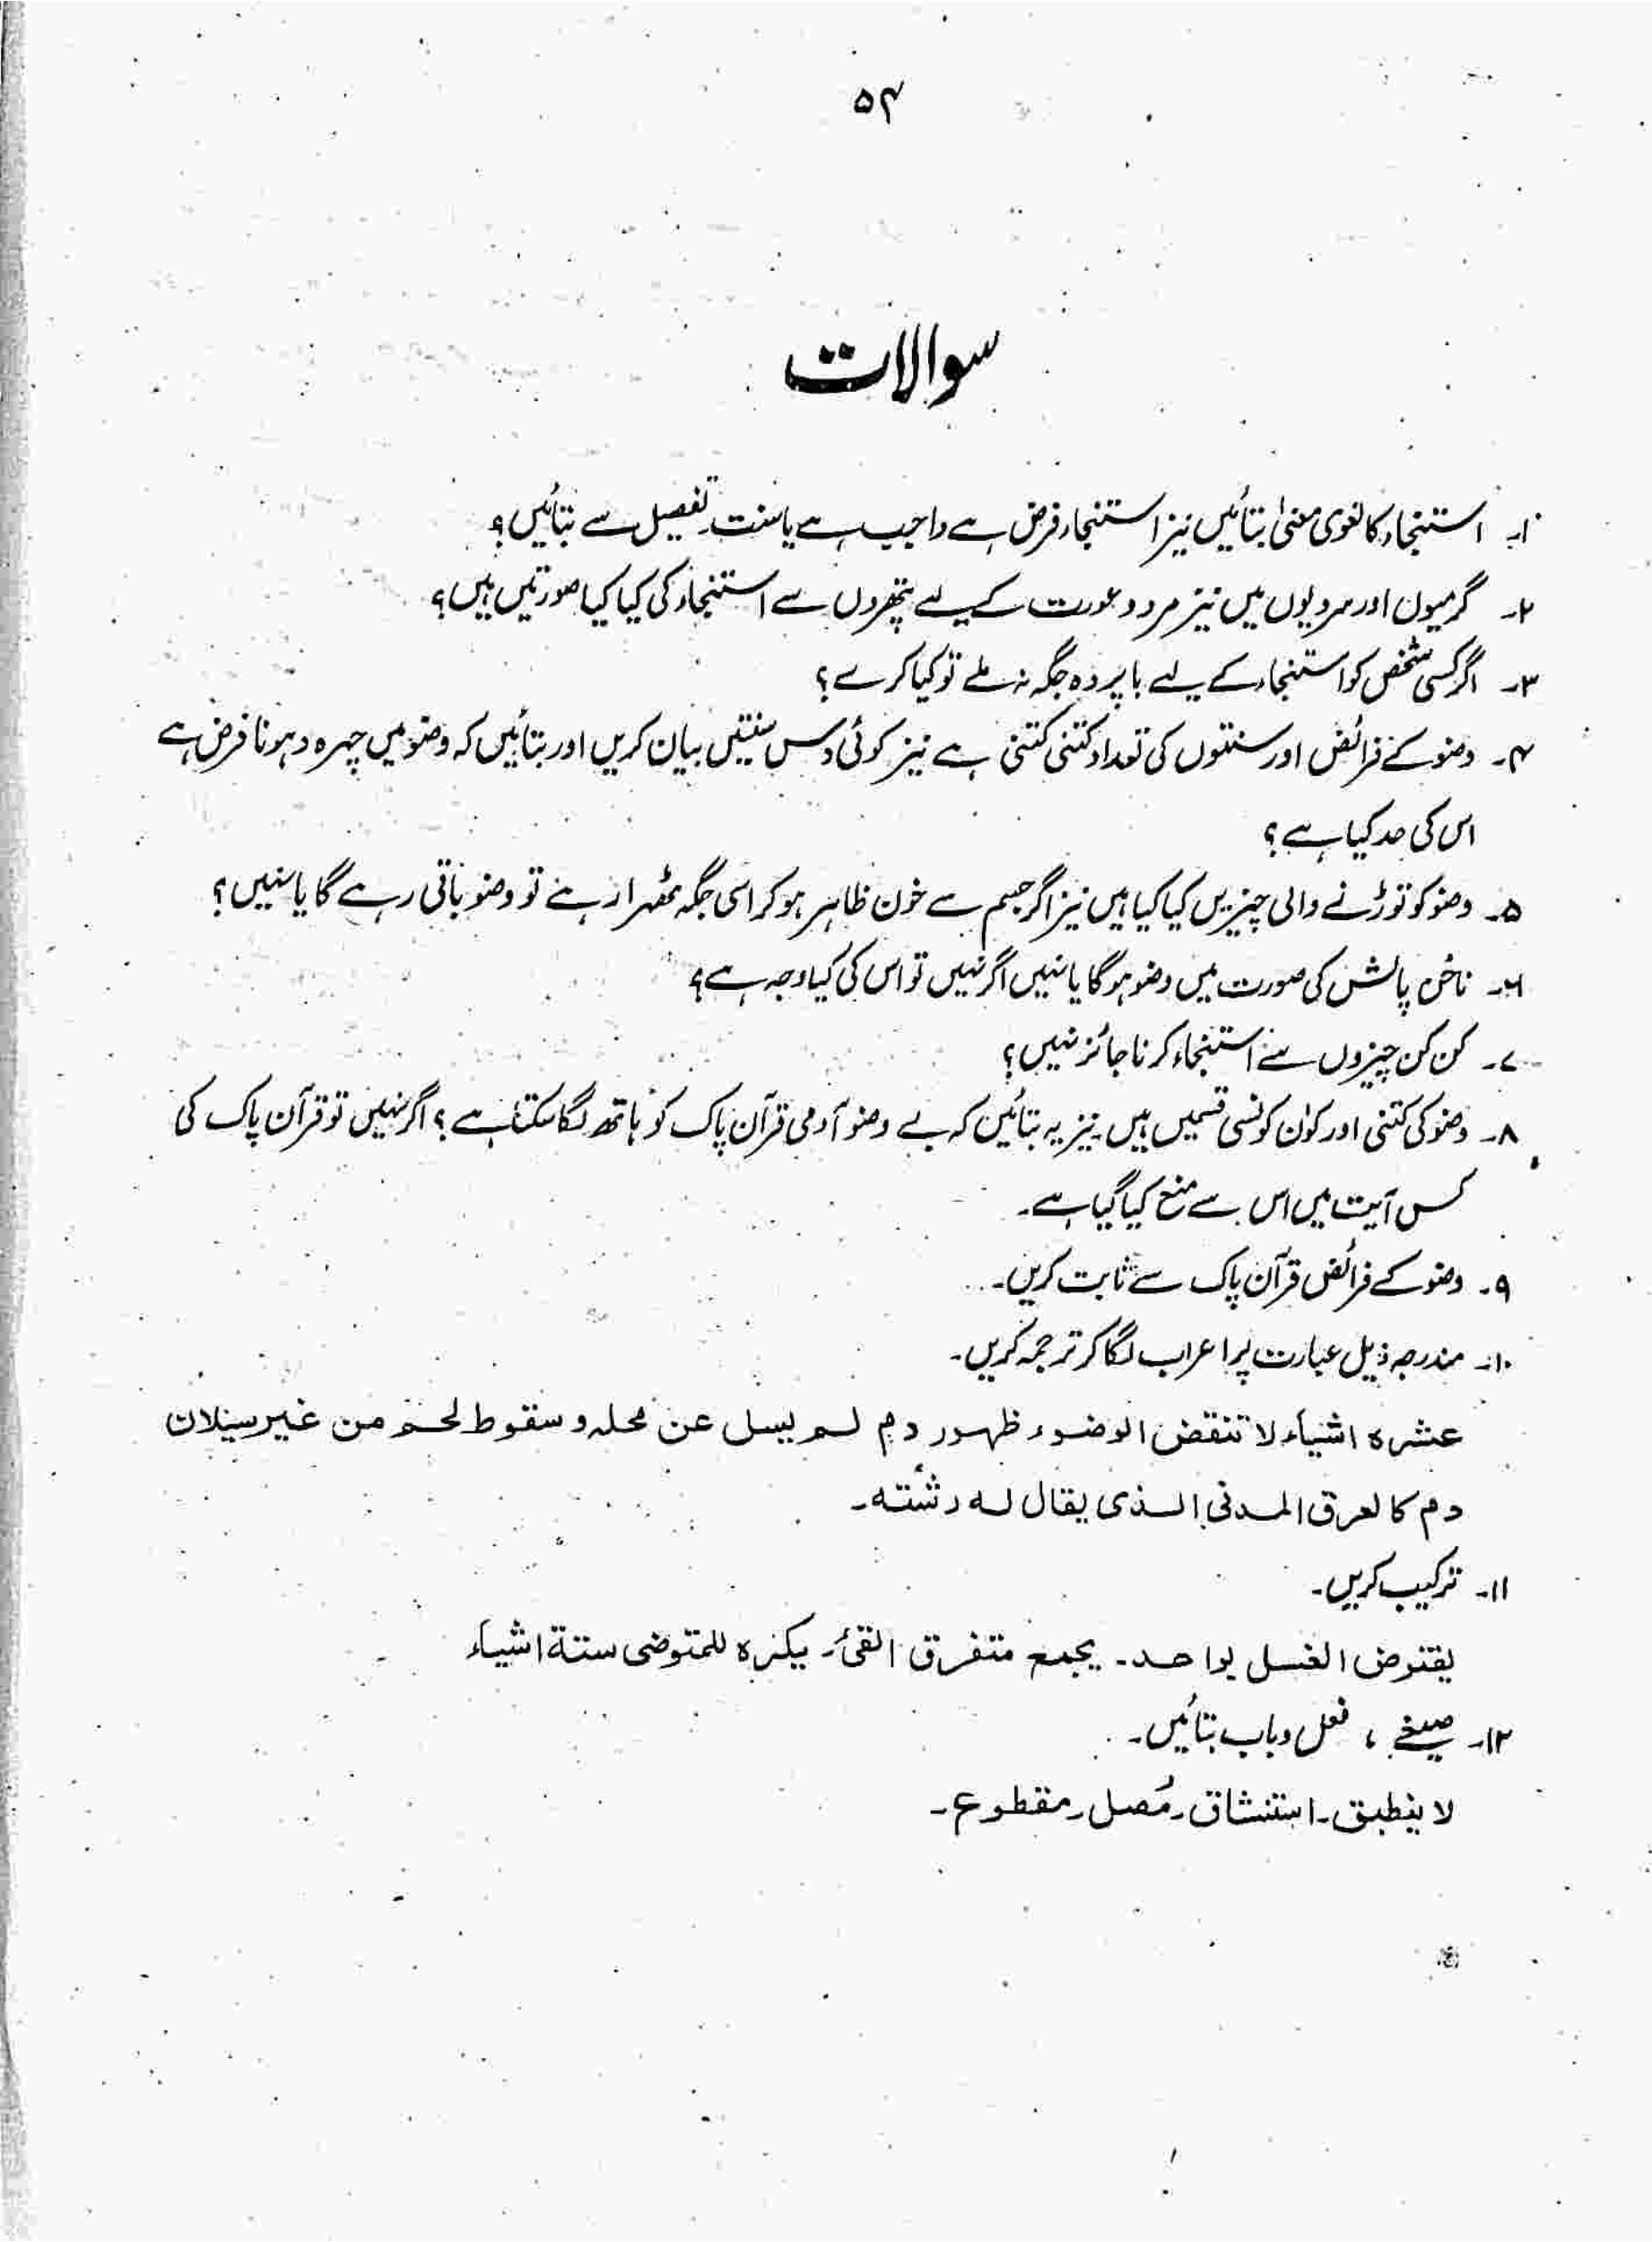 ۵۴
سوالات
۱۔ استنجاء کا لغوی معنیٰ بتائیں نیز استنجاء فرض ہے واجب ہے یا سنت تفصیل سے بتائیں؟
۲۔ گرمیوں اور سردیوں میں نیز مرد و عورت کے لیے پتھروں سے استنجاء کی کیا کیا صورتیں ہیں؟
۳۔ اگر کسی شخص کو استنجاء کے لیے باپردہ جگہ نہ ملے تو کیا کرے؟
۴۔ وضو کے فرائض اور سنتوں کی تعداد کتنی کتنی ہے نیز کوئی دس سنتیں بیان کریں اور بتائیں کہ وضو میں چہرہ دہونا فرض ہے
اس کی حد کیا ہے؟
۵۔ وضو کو توڑنے والی چیزیں کیا کیا ہیں نیز اگر جسم سے خون ظاہر ہو کر اسی جگہ ٹھہرا رہے تو وضو باقی رہے گا یا نہیں؟
۶۔ ناخن پالش کی صورت میں وضو ہو گا یا نہیں اگر نہیں تو اس کی کیا وجہ ہے؟
۷۔ کن کن چیزوں سے استنجاء کرنا جائز نہیں؟
۸۔ وضو کی کتنی اور کون کونسی قسمیں ہیں۔ نیز یہ بتائیں کہ بے وضو آدمی قرآن پاک کو ہاتھ لگا سکتا ہے؟ اگر نہیں تو قرآن پاک کی
کس آیت میں اس سے منع کیا گیا ہے۔
۹۔ وضو کے فرائض قرآن پاک سے ثابت کریں۔
۱۰۔ مندرجہ ذیل عبارت پر اعراب لگا کر ترجمہ کریں۔
عشرہ اشیآء لا تنقض الوضوء ظہور دم لم یسل عن محلہ و سقوط لحم من غیر سیلان
دم کالعرق المدنی الذی یقال لہ رشتہ۔
۱۱۔ ترکیب کریں۔
یفترض الغسل بواحد۔ یجمع متفرق القئ۔ یکرہ للمتوضی ستۃ اشیآء
۱۲۔ صیغے، فعل و باب بتائیں۔
لا ینطبق۔ استنشاق۔ مُصل۔ مقطوع۔